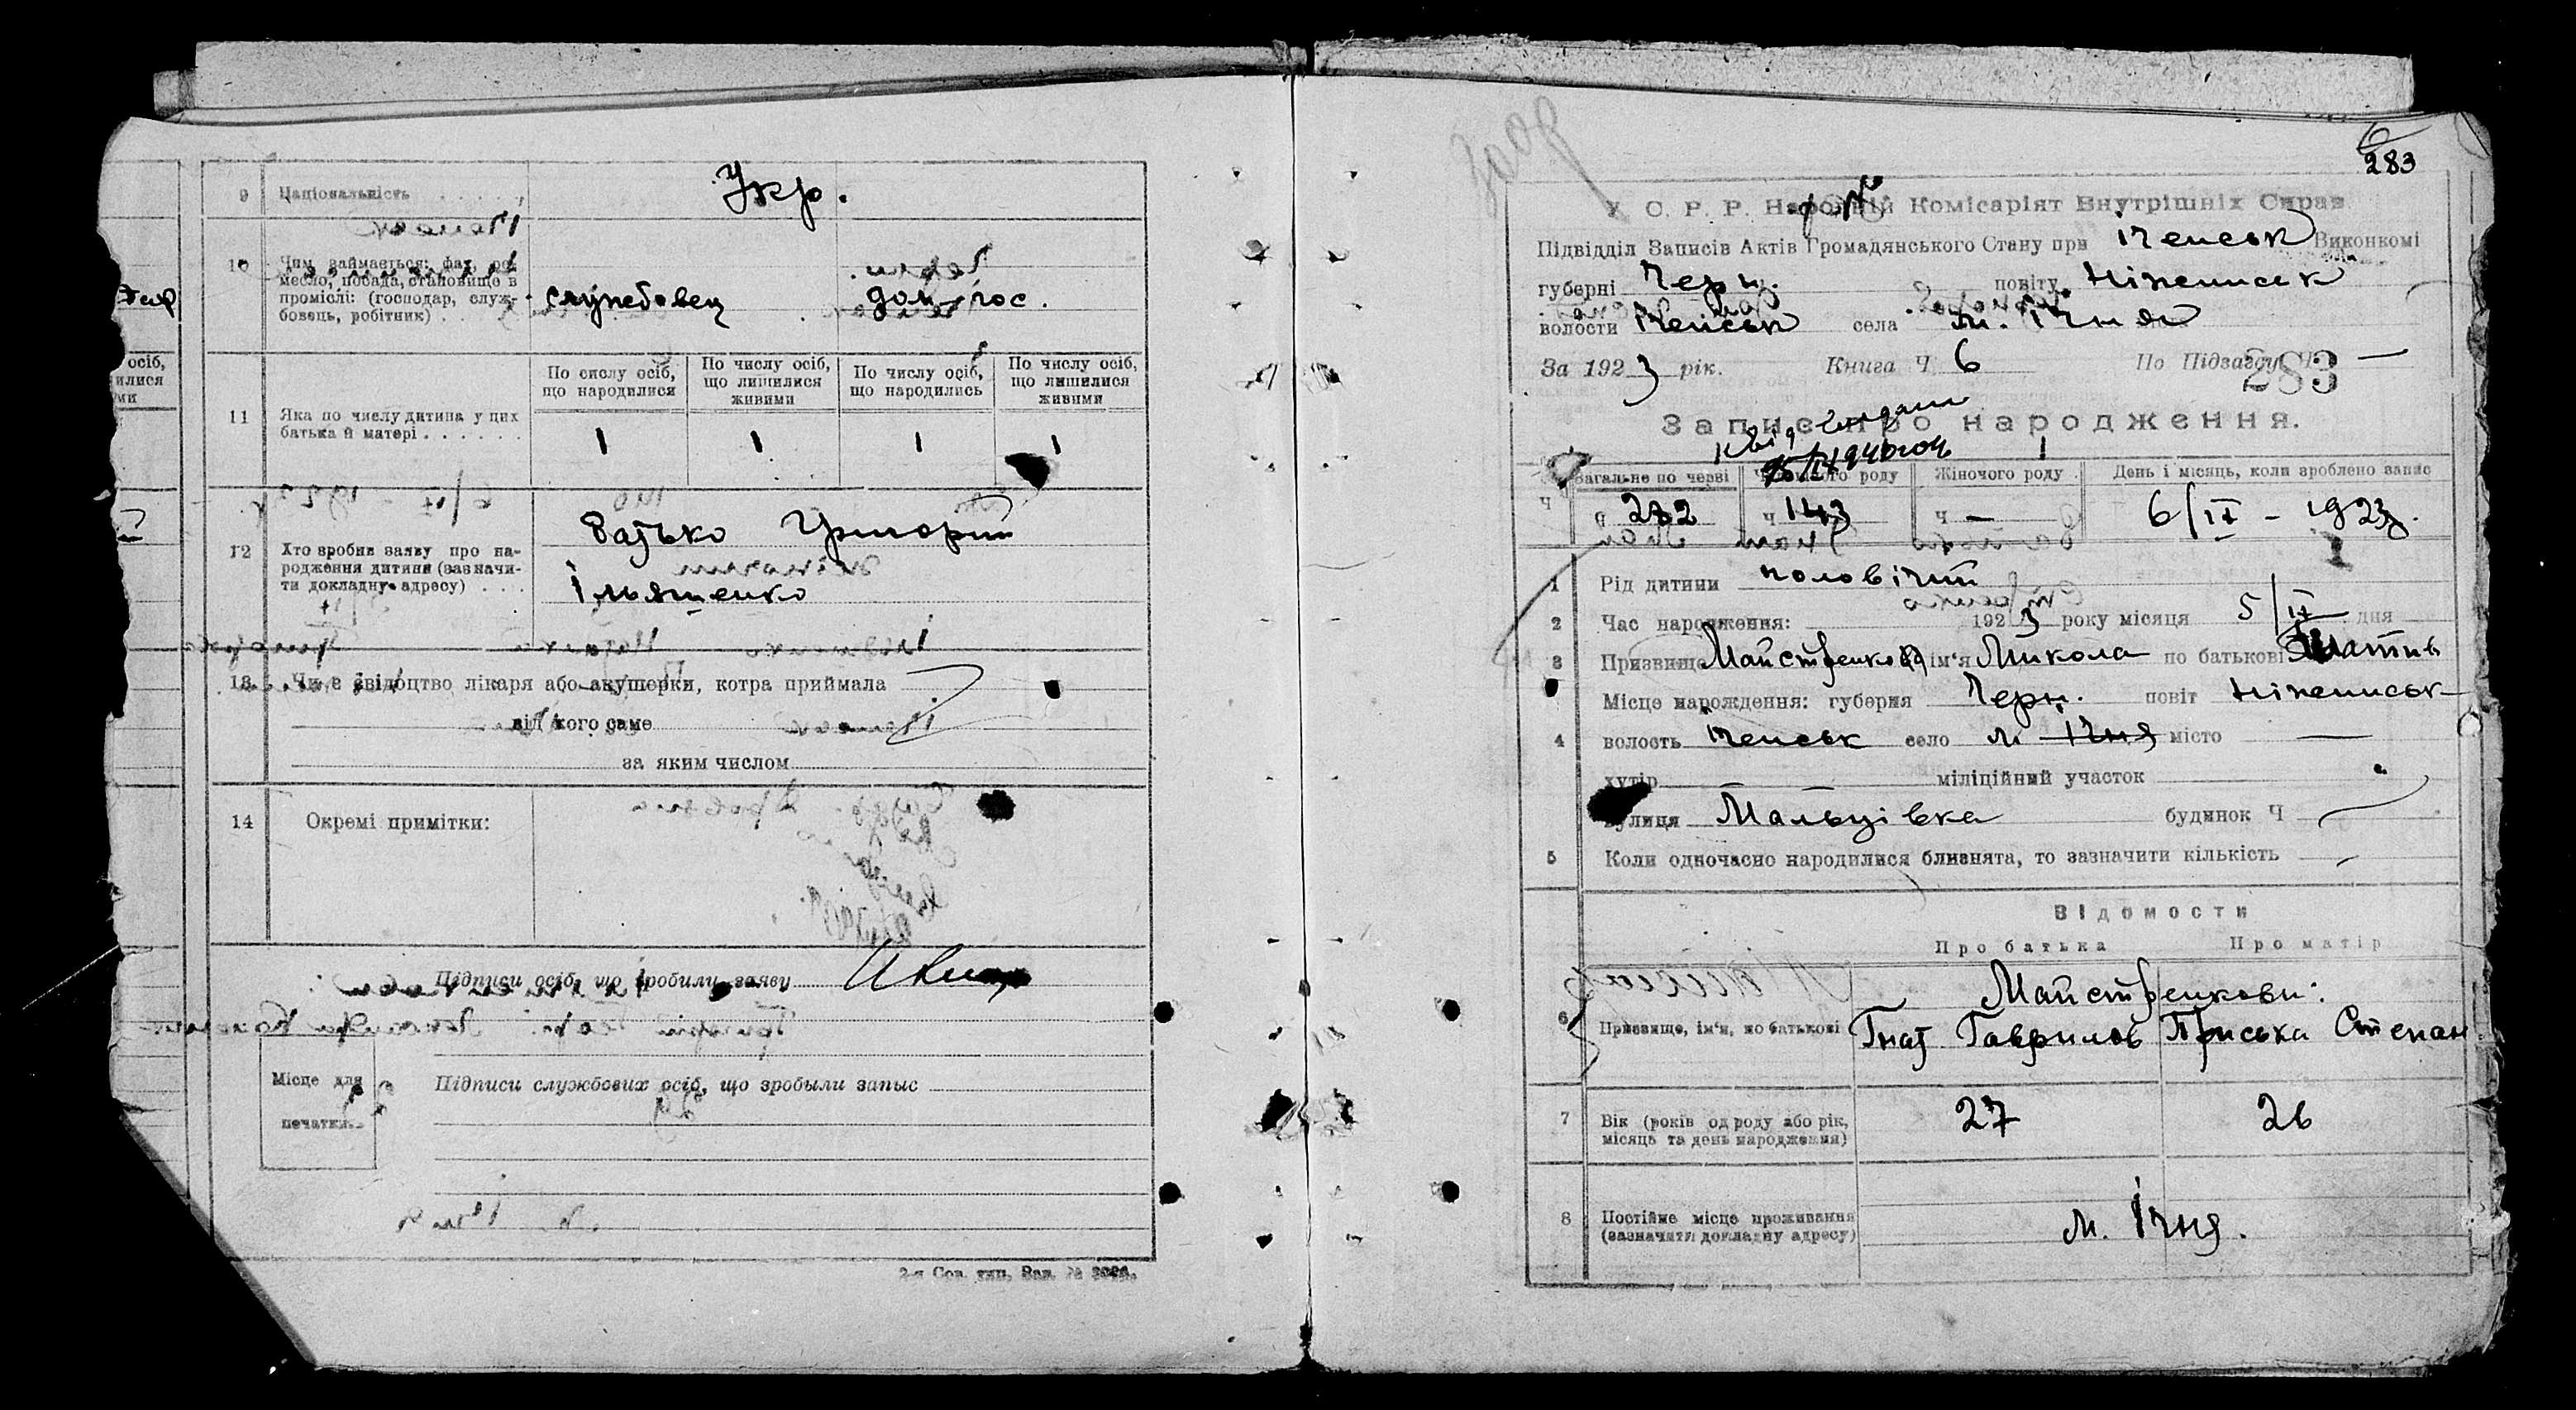 9 Національність . . . . . Укр.
10 Чим займається: фах, ре-
месло, посада, становище в
проміслі: (господар, служ-
бовець, робітник) . . службовец дом-гос.
По числу осіб, що народилися
По числу осіб, що лишилися живими
По числу осіб, що народились
По числу осіб, що лишилися живими
11 Яка по числу дитина у цих
батька й матері . . . . . . 1 1 1 1
12 Хто зробив заяву про на-
родження дитини (зазначи-
ти докладну адресу) . . .
Батько Григорій
Ільяшенко
13 Чи є свідоцтво лікаря або акушерки, котра приймала
від кого саме
за яким числом
14 Окремі примітки:
Підписи осіб, що зробили заяву
Місце для
печатки.
Підписи службових осіб, що зробыли запыс
осіб,
283
У. С. Р. Р. Народній Комісаріят Внутрішніх Справ
Підвідділ Записів Актів Громадянського Стану при Іченськ Виконкомі
губерні Черн. повіту Ніжениськ
волости Іченськ села м. Ічня
За 1923 рік. Книга Ч 6 По Підзагсу Ч —
283
Запис про народження.
Загальне по черзі Чоловічого роду Жіночого роду День і місяць, коли зроблено запис
Ч Ч 282 Ч 143 Ч — 6/IX – 1923.
1 Рід дитини чоловічий
2 Час народження: 1923 року місяця 5/IX дня
3 Призвище Майстренко ім'я Микола по батькові
Місце народження: губерня Черн. повіт Ніжениськ
4 волость Іченськ село м Ічня місто —
хутір міліційний участок
вулиця Мальцівка будинок Ч
5 Коли одночасно народилися близнята, то зазначити кількість
Відомости
Про батька Про матір
Майстренкови:
6 Призвище, ім'я, по батькові Гнат Гаврилов Приська Степан
7 Вік (років од роду або рік,
місяць та день народження) 27 26
8 Постійне місце проживання
(зазначити докладну адресу) м. Ічня.